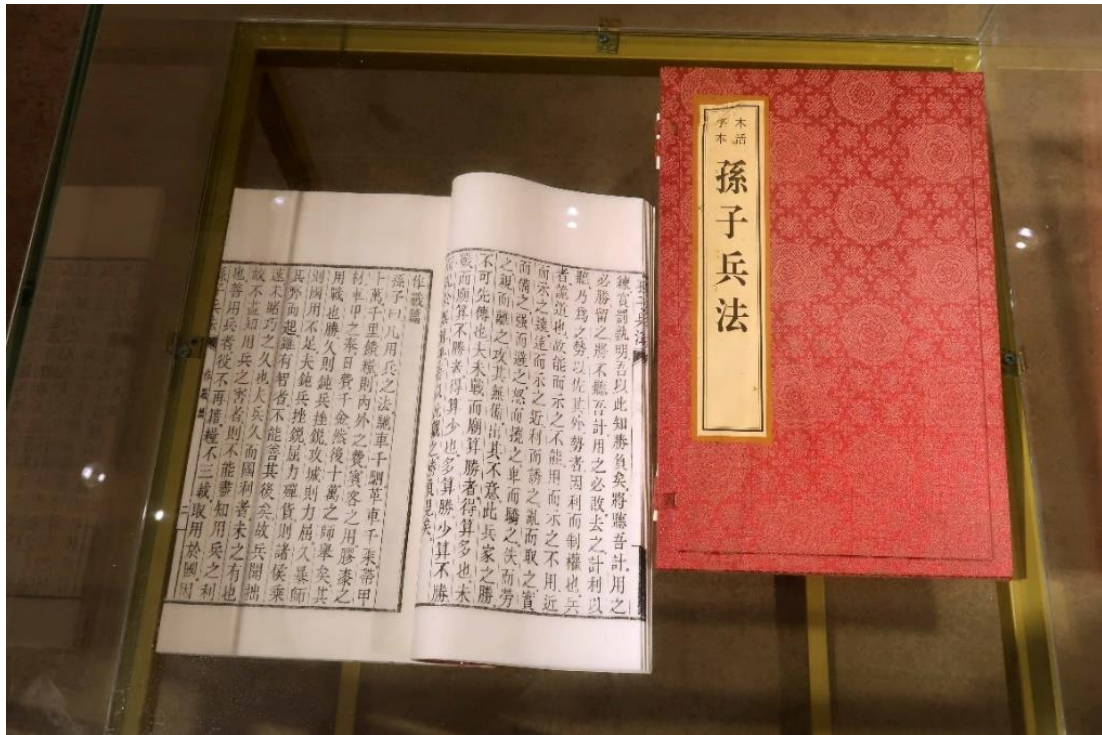 木活
字本
孫子兵法
練賞罰孰明吾以此知勝負矣將聽吾計用之
必勝留之將不聽吾計用之必敗去之計利以
聽乃爲之勢以佐其外勢者因利而制權也兵
者詭道也故能而示之不能用而示之不用近
而示之遠遠而示之近利而誘之亂而取之實
而備之强而避之怒而撓之卑而驕之佚而勞
之親而離之攻其無備出其不意此兵家之勝
不可先傳也夫未戰而廟算勝者得算多也未
戰而廟算不勝者得算少也多算勝少算不勝
觀之勝負見矣
作戰篇
孫子曰凡用兵之法馳車千駟革車千乘帶甲
十萬千里饋糧則內外之費賓客之用膠漆之
材車甲之奉日費千金然後十萬之師舉矣其
用戰也勝久則鈍兵挫銳攻城則力屈久暴師
則國用不足夫鈍兵挫銳屈力殫貨則諸侯乘
其弊而起雖有智者不能善其後矣故兵聞拙
速未睹巧之久也夫兵久而國利者未之有也
故不盡知用兵之害者則不能盡知用兵之利
也善用兵者役不再籍糧不三載取用於國因
孫子兵法 二